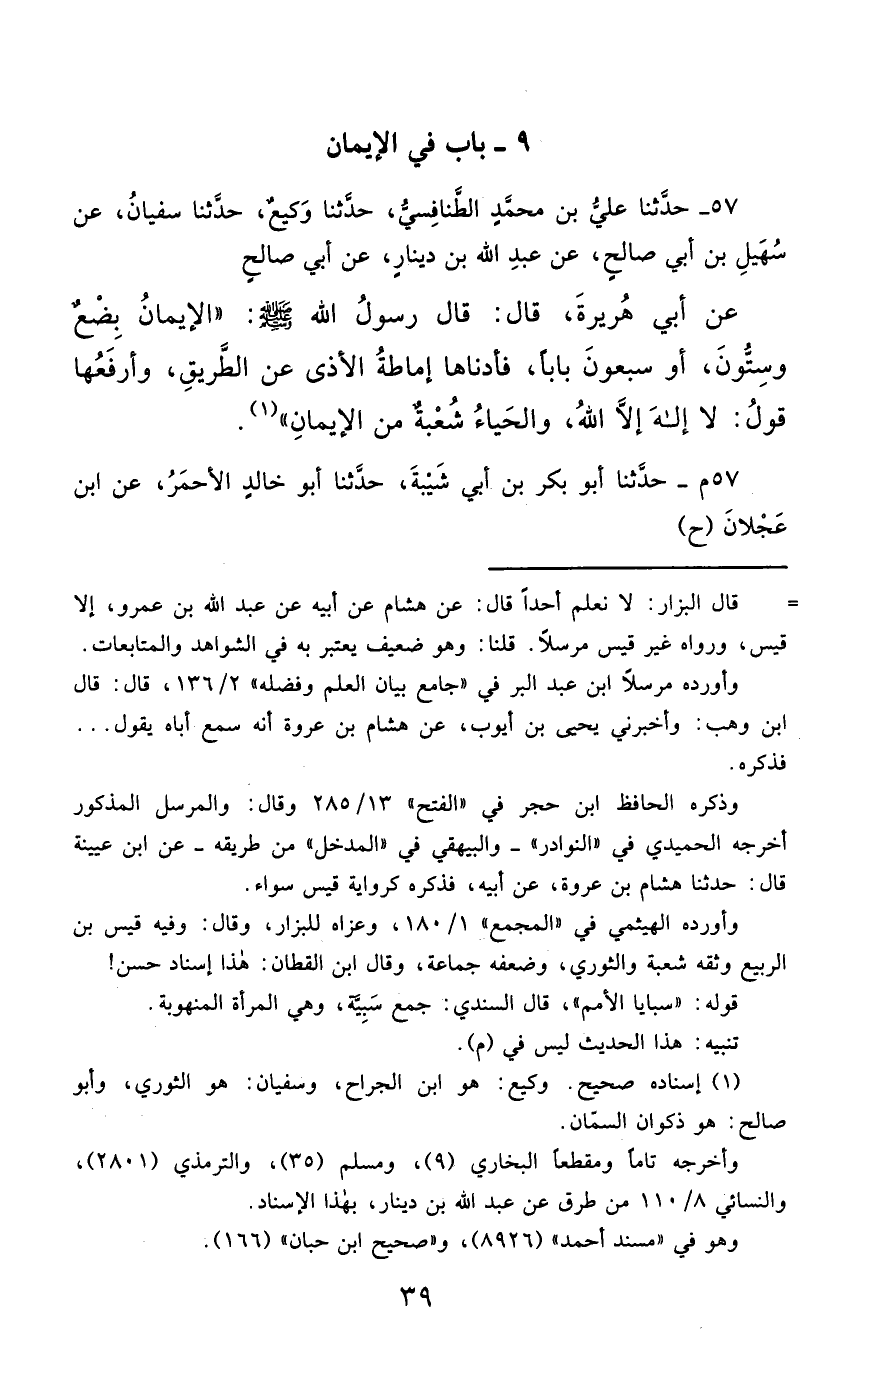 ٩ ـ باب في الإيمان
٥٧ـ حدَّثنا عليُّ بن محمَّدٍ الطَّنافِسيُّ، حدَّثنا وَكيعٌ، حدَّثنا سفيانُ، عن
سُهَيلِ بن أبي صالحٍ، عن عبدِ الله بن دينارٍ، عن أبي صالحٍ
عن أبي هُريرةَ، قال: قال رسولُ الله ﷺ: «الإيمانُ بِضْعٌ
وسِتُّونَ، أو سبعونَ باباً، فأدناها إماطةُ الأذى عن الطَّريقِ، وأرفَعُها
قولُ: لا إلـٰهَ إلاَّ اللهُ، والحَياءُ شُعْبةٌ من الإيمانِ»(١).
٥٧م ـ حدَّثنا أبو بكر بن أبي شَيْبةَ، حدَّثنا أبو خالدٍ الأحمَرُ، عن ابن
عَجْلانَ (ح)
= قال البزار: لا نعلم أحداً قال: عن هشام عن أبيه عن عبد الله بن عمرو، إلا
قيس، ورواه غير قيس مرسلاً. قلنا: وهو ضعيف يعتبر به في الشواهد والمتابعات.
وأورده مرسلاً ابن عبد البر في «جامع بيان العلم وفضله» ١٣٦/٢، قال: قال
ابن وهب: وأخبرني يحيى بن أيوب، عن هشام بن عروة أنه سمع أباه يقول...
فذكره.
وذكره الحافظ ابن حجر في «الفتح» ٢٨٥/١٣ وقال: والمرسل المذكور
أخرجه الحميدي في «النوادر» ـ والبيهقي في «المدخل» من طريقه ـ عن ابن عيينة
قال: حدثنا هشام بن عروة، عن أبيه، فذكره كرواية قيس سواء.
وأورده الهيثمي في «المجمع» ١٨٠/١، وعزاه للبزار، وقال: وفيه قيس بن
الربيع وثقه شعبة والثوري، وضعفه جماعة، وقال ابن القطان: هٰذا إسناد حسن!
قوله: «سبايا الأمم»، قال السندي: جمع سَبِيَّة، وهي المرأة المنهوبة.
تنبيه: هذا الحديث ليس في (م).
(١) إسناده صحيح. وكيع: هو ابن الجراح، وسفيان: هو الثوري، وأبو
صالح: هو ذكوان السمّان.
وأخرجه تاماً ومقطعاً البخاري (٩)، ومسلم (٣٥)، والترمذي (٢٨٠١)،
والنسائي ١١٠/٨ من طرق عن عبد الله بن دينار، بهٰذا الإسناد.
وهو في «مسند أحمد» (٨٩٢٦)، و«صحيح ابن حبان» (١٦٦).
٣٩